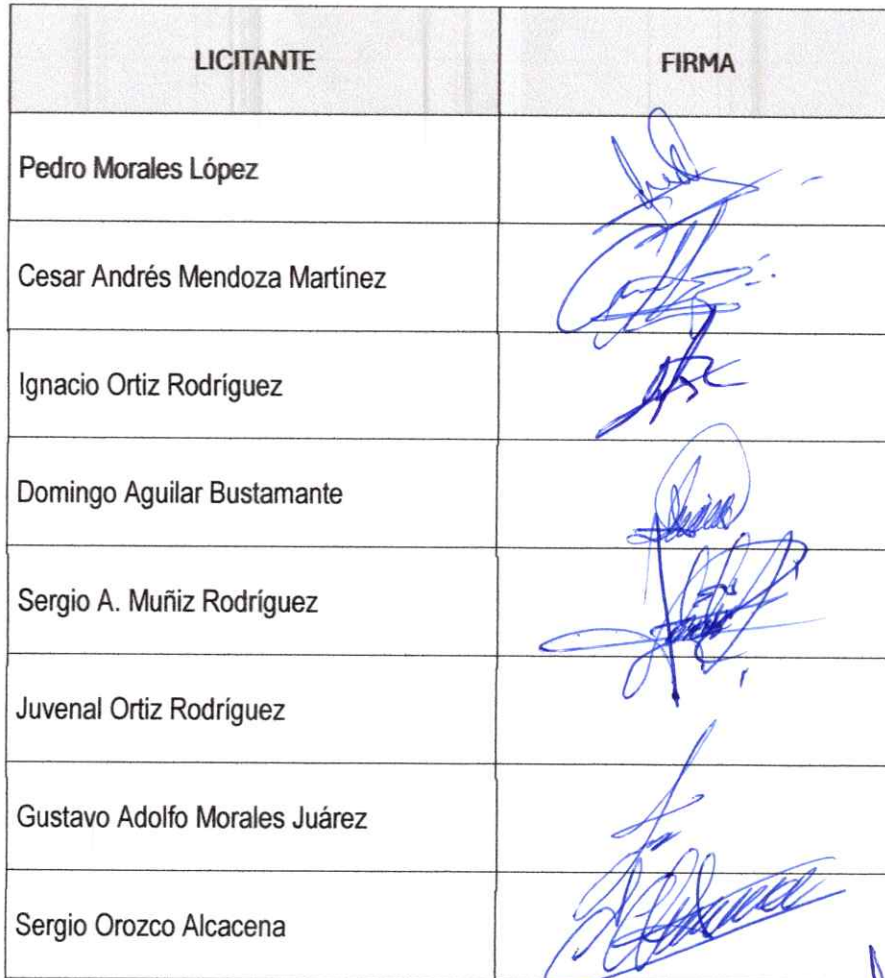 LICITANTE FIRMA
Pedro Morales López
Cesar Andrés Mendoza Martínez
Ignacio Ortiz Rodríguez
Domingo Aguilar Bustamante
Sergio A. Muñiz Rodríguez
Juvenal Ortiz Rodríguez
Gustavo Adolfo Morales Juárez
Sergio Orozco Alcacena